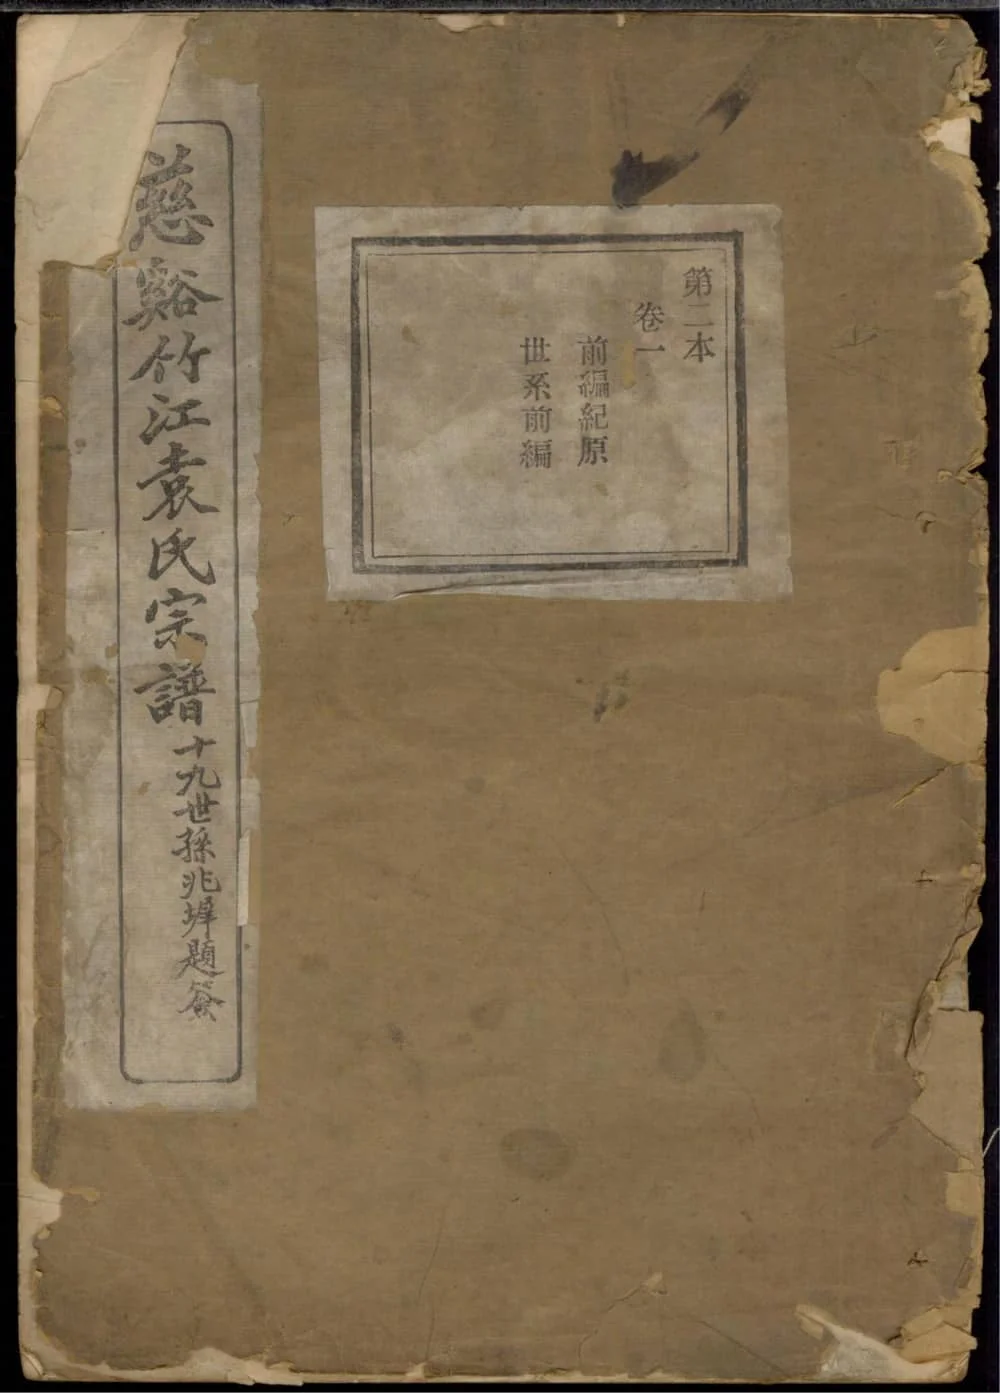 第二本
卷一
前編紀原
世系前編
慈谿竹江袁氏宗譜
十九世孫兆墀題簽